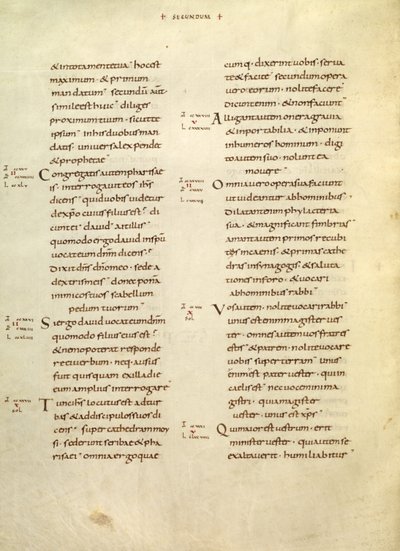 + SECUNDUM +
& intota mente tua hoc est
maximum · & primum
mandatum · secundū aut
simile est huic · diliges
proximum tuum · sicut te
ipsum · in his duobus man
datis · universa lex pend&
& prophetae
Congregatis autem pharisae
is · interrogavit eos ihs
dicens · quid vobis videtur
de xpo cuius filius est · di
cunt ei david · ait illis
quomodo ergo david in spu
vocat eum dnm dicens ·
Dixit dns dno meo · sede a
dextris meis · donec ponā
inimicos tuos scabellum
pedum tuorum ·
Si ergo david vocat eum dnm
quomodo filius eius est ·
& nemo poterat responde
re ei verbum · neq · ausus
fuit quisquam ex illa die
eum amplius interrogare
Tunc ihs locutus est ad tur
bas · & ad discipulos suos di
cens · super cathedram moy
si · sederunt scribae & pha
risaei · omnia ergo quae
cumq · dixerint vobis · serva
te & facite · secundum opera
vero eorum · nolite facere
dicunt enim · & non faciunt
Alligant autem onera gravia
& inportabilia · & inponunt
in humeros hominum · digi
to autem suo · nolunt ea
movere ·
Omnia vero opera sua faciunt
ut videantur ab hominibus ·
Dilatant enim phylacteria
sua · & magnificant fimbrias
amant autem primos recubi
tos in caenis · & primas cathe
dras in synagogis · & saluta
tiones in foro · & vocari
ab hominibus rabbi
Vos autem · nolite vocari rabbi
unus est enim magister ves
ter · omnes autem vos fratres
estis · & patrem · nolite vocare
vobis super terram · unus
enim est pater vester · qui in
caelis est · nec vocemini ma
gistri · quia magister
vester · unus est xps ·
Qui maior est vestrum · erit
minister vester · qui autem se
exaltaverit · humiliabitur